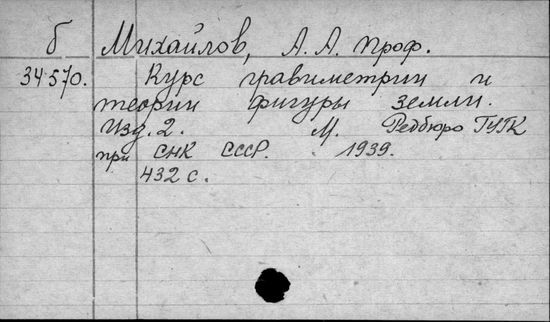 б Михайлов, А. А. проф.
34570. Курс гравиметрии и
теории фигуры земли.
Изд. 2. М. Редбюро ГУГК
при СНК СССР. 1939.
432 с.